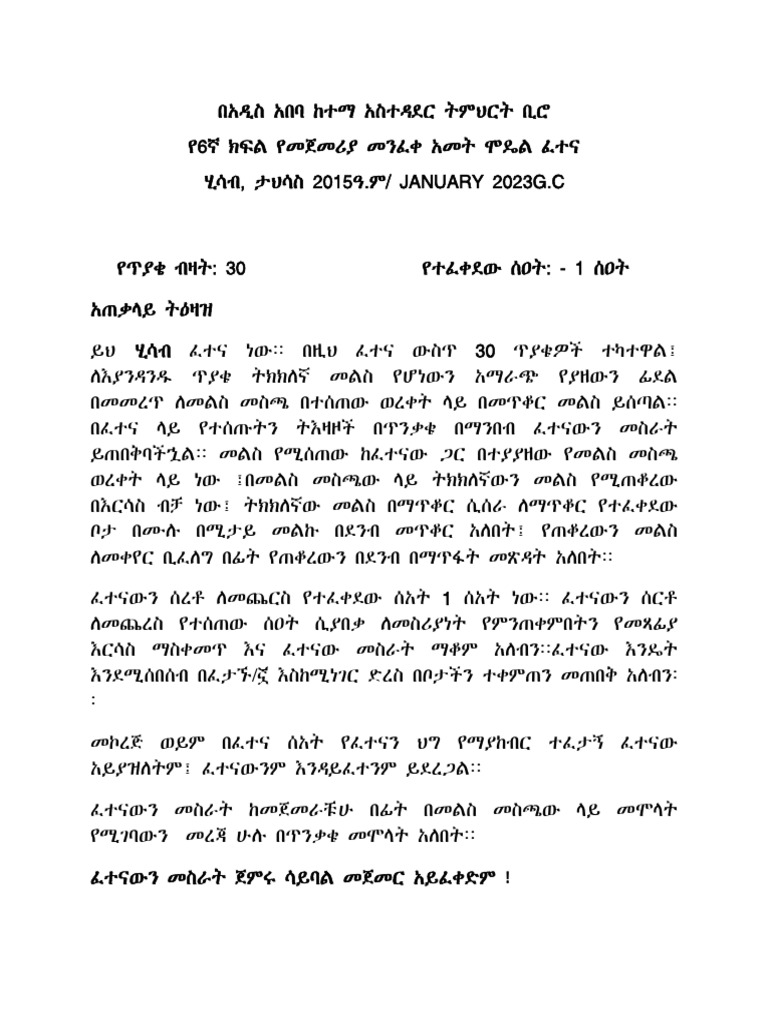 በአዲስ አበባ ከተማ አስተዳደር ትምህርት ቢሮ
የ6ኛ ክፍል የመጀመሪያ መንፈቀ አመት ሞዴል ፈተና
ሂሳብ, ታህሳስ 2015ዓ.ም/ JANUARY 2023G.C
የጥያቄ ብዛት: 30 የተፈቀደው ሰዐት: - 1 ሰዐት
አጠቃላይ ትዕዛዝ
ይህ ሂሳብ ፈተና ነው፡፡ በዚህ ፈተና ውስጥ 30 ጥያቄዎች ተካተዋል፤
ለእያንዳንዱ ጥያቄ ትክክለኛ መልስ የሆነውን አማራጭ የያዘውን ፊደል
በመመረጥ ለመልስ መስጫ በተሰጠው ወረቀት ላይ በመጥቆር መልስ ይሰጣል፡፡
በፈተና ላይ የተሰጡትን ትእዛዞች በጥንቃቄ በማንበብ ፈተናውን መስራት
ይጠበቅባችኗል፡፡ መልስ የሚሰጠው ከፈተናው ጋር በተያያዘው የመልስ መስጫ
ወረቀት ላይ ነው ፤በመልስ መስጫው ላይ ትክክለኛውን መልስ የሚጠቆረው
በእርሳስ ብቻ ነው፤ ትክክለኛው መልስ በማጥቆር ሲሰራ ለማጥቆር የተፈቀደው
ቦታ በሙሉ በሚታይ መልኩ በደንብ መጥቆር አለበት፤ የጠቆረውን መልስ
ለመቀየር ቢፈለግ በፊት የጠቆረውን በደንብ በማጥፋት መጽዳት አለበት፡፡
ፈተናውን ሰረቶ ለመጨርስ የተፈቀደው ሰአት 1 ሰአት ነው፡፡ ፈተናውን ሰርቶ
ለመጨረስ የተሰጠው ሰዐት ሲያበቃ ለመስሪያነት የምንጠቀምበትን የመጻፊያ
እርሳስ ማስቀመጥ እና ፈተናው መስራት ማቆም አለብን፡፡ፈተናው እንዴት
እንደሚሰበሰብ በፈታኙ/ኟ እስከሚነገር ድረስ በቦታችን ተቀምጠን መጠበቅ አለብን፡
፡
መኮረጅ ወይም በፈተና ሰአት የፈተናን ህግ የማያከብር ተፈታኝ ፈተናው
አይያዝለትም፤ ፈተናውንም እንዳይፈተንም ይደረጋል፡፡
ፈተናውን መስራት ከመጀመራቹሁ በፊት በመልስ መስጫው ላይ መሞላት
የሚገባውን መረጃ ሁሉ በጥንቃቄ መሞላት አለበት፡፡
ፈተናውን መስራት ጀምሩ ሳይባል መጀመር አይፈቀድም !